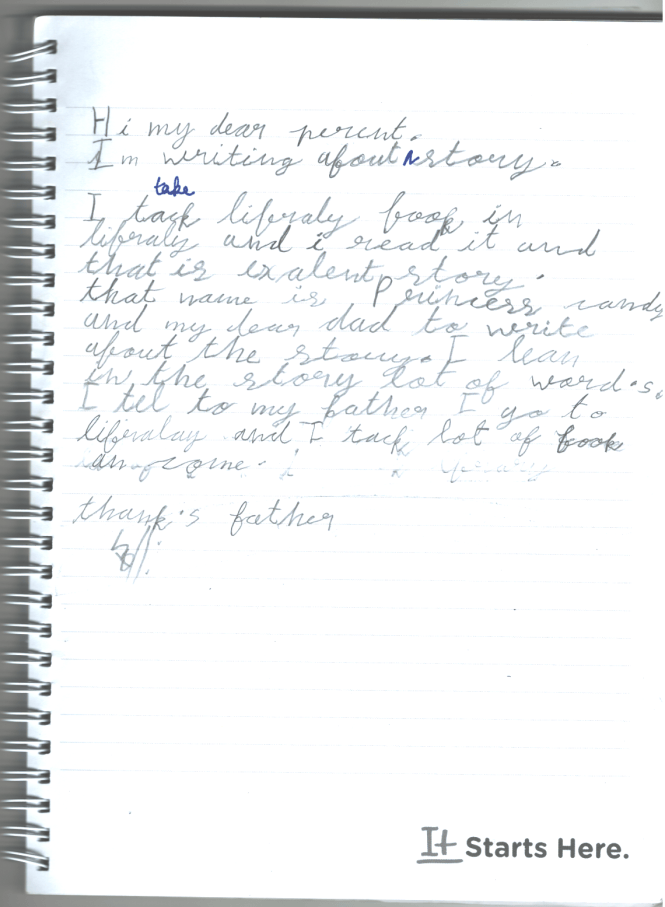 Hi my dear perent.
I'm writing about story.
take
I tack liferaly book in
liferaly and i read it and
that is exalent story.
that name is Princess candy
and my dear dad to write
about the story. I lean
in the story lot of word's.
I tel to my father I go to
liferalay and I tack lot of book
and come.
thank's father
It Starts Here.